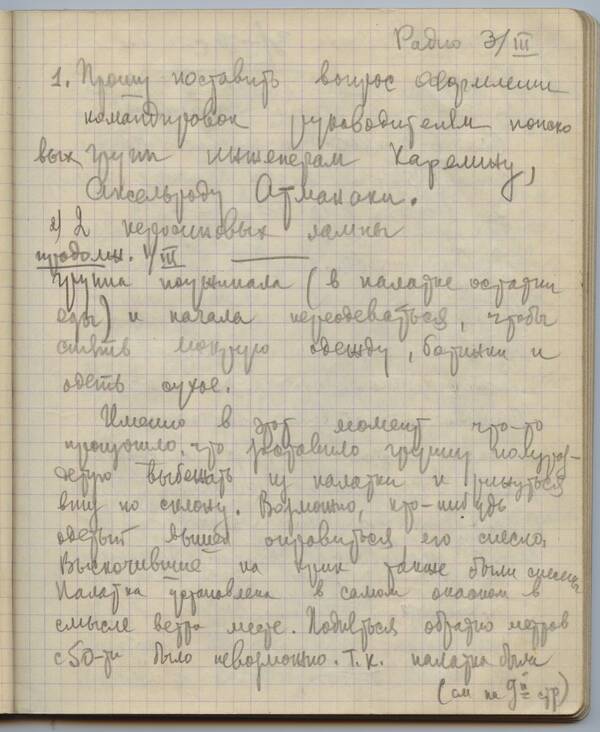 Радио 3/III
1. Прошу поставить вопрос оформлении
командировок руководителям поиско
вых групп инженерам Карелину,
Аксельроду Атманаки.
2) 2 керосиновых лампы
продолж. 1/III
группа поужинала (в палатке остатки
еды) и начала переодеваться, чтобы
снять мокрую одежду, ботинки и
одеть сухое.
Именно в этот момент что-то
произошло, что заставило группу полураз-
детую выбежать из палатки и ринуться
вниз по склону. Возможно, кто-нибудь
одетый вышел оправиться его снесло.
Выскочившие на крик также были снесены
Палатка установлена в самом опасном в
смысле ветра месте. Подняться обратно метров
с 50-ти было невозможно. т.к. палатка была
(см на 9й стр)